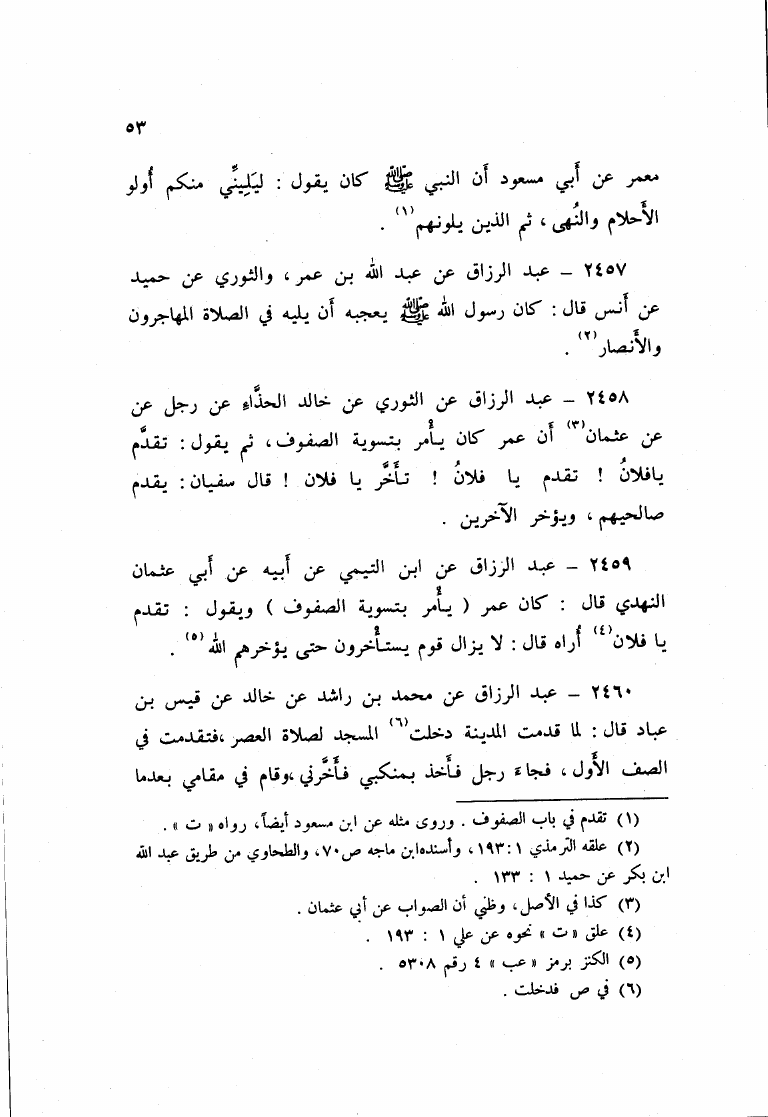 ٥٣
معمر عن أبي مسعود أن النبي ﷺ كان يقول : ليَلِيَنِّي منكم أولو
الأحلام والنُهى ، ثم الذين يلونهم(١) .
٢٤٥٧ – عبد الرزاق عن عبد الله بن عمر ، والثوري عن حميد
عن أنس قال : كان رسول الله ﷺ يعجبه أن يليه في الصلاة المهاجرون
والأنصار(٢) .
٢٤٥٨ – عبد الرزاق عن الثوري عن خالد الحذَّاءِ عن رجل عن
عن عثمان(٣) أن عمر كان يأمر بتسوية الصفوف ، ثم يقول : تقدَّم
يافلانُ ! تقدم يا فلانُ ! تأَخَّر يا فلان ! قال سفيان : يقدم
صالحيهم ، ويؤخر الآخرين .
٢٤٥٩ – عبد الرزاق عن ابن التيمي عن أبيه عن أبي عثمان
النهدي قال : كان عمر ( يأمر بتسوية الصفوف ) ويقول : تقدم
يا فلان(٤) أُراه قال : لا يزال قوم يستأخرون حتى يؤخرهم الله(٥) .
٢٤٦٠ – عبد الرزاق عن محمد بن راشد عن خالد عن قيس بن
عباد قال : لما قدمت المدينة دخلت(٦) المسجد لصلاة العصر ،فتقدمت في
الصف الأول ، فجاءَ رجل فأخذ بمنكبي فأَخَّرني ،وقام في مقامي بعدما
(١) تقدم في باب الصفوف . وروى مثله عن ابن مسعود أيضاً ، رواه « ت » .
(٢) علقه الترمذي ١ :١٩٣ ، وأسنده ابن ماجه ص٧٠ ، والطحاوي من طريق عبد الله
ابن بكر عن حميد ١ : ١٣٣ .
(٣) كذا في الأصل ، وظني أن الصواب عن أبي عثمان .
(٤) علق « ت » نحوه عن علي ١ : ١٩٣ .
(٥) الكنز برمز « عب » ٤ رقم ٥٣٠٨ .
(٦) في ص فدخلت .